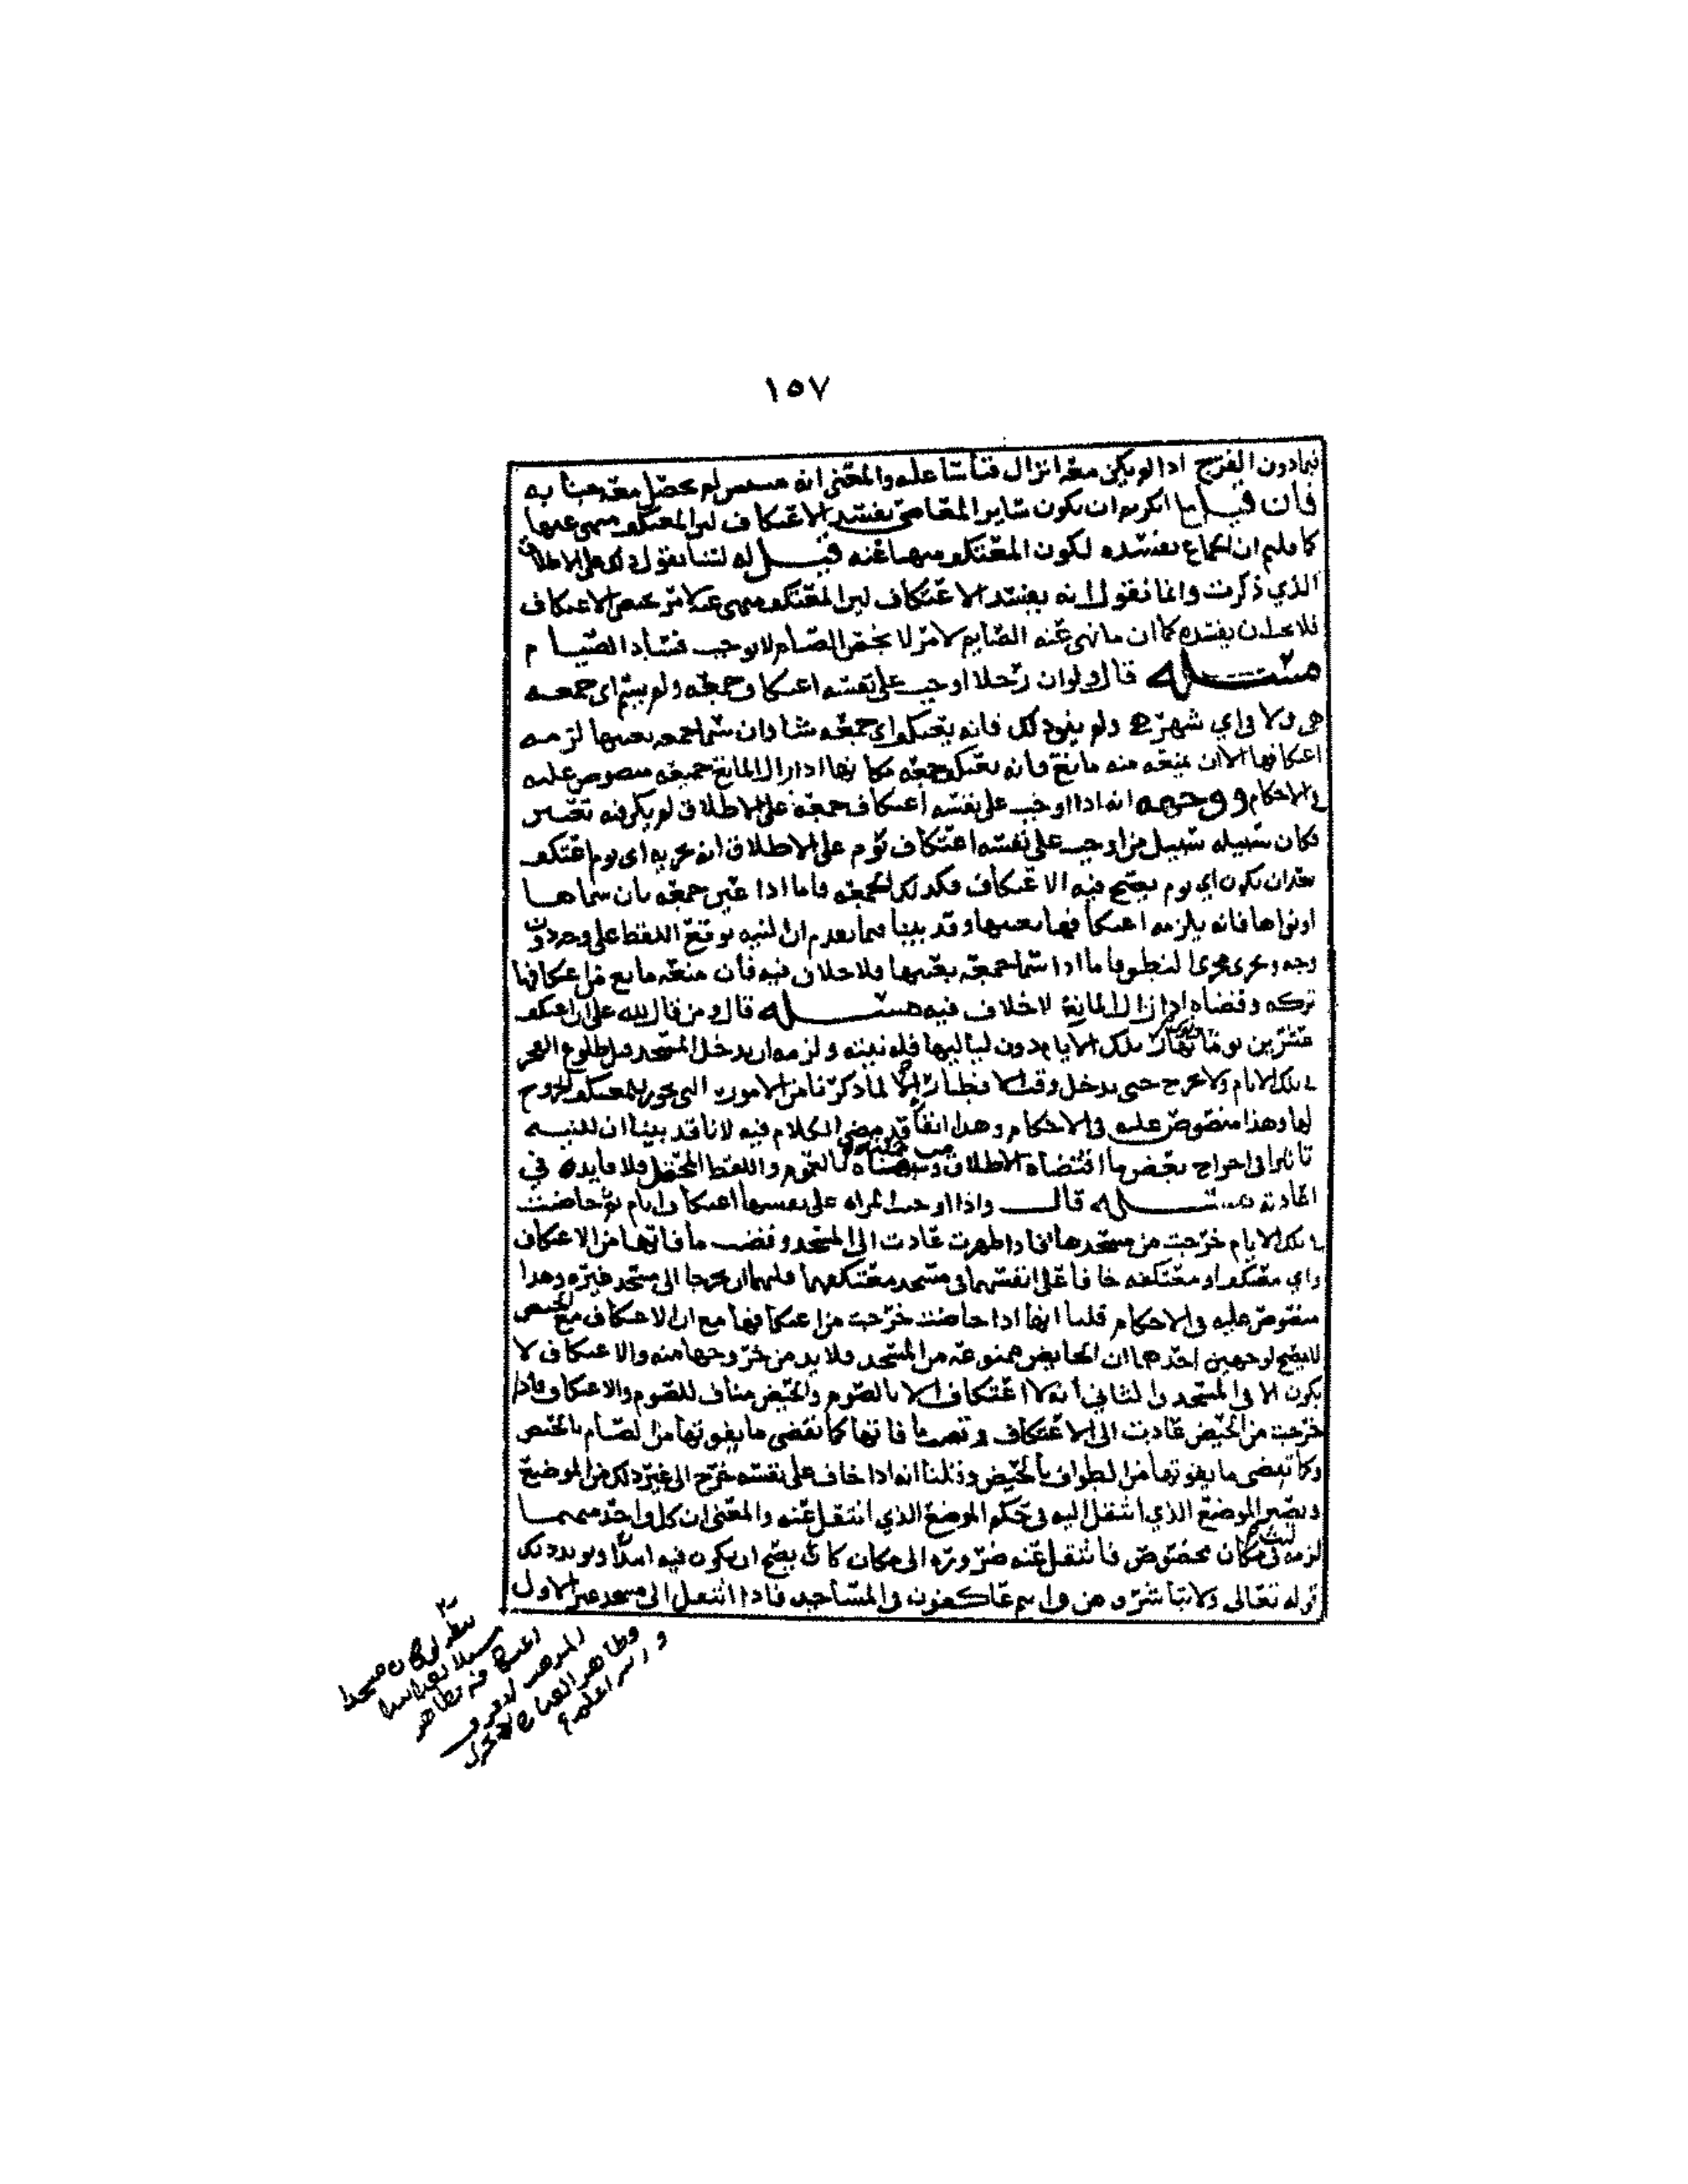 ١٥٧
فيما دون الفرج اذا لم يكن معه انزال قياسا عليه والمعنى انه لم يحصل معه جنابه
فان قيل ما انكرتم ان يكون سائر المعاصي يفسد الاعتكاف لان المعتكف منهي عنها
كما قلتم ان الجماع يفسده لكون المعتكف منهيا عنه قيل له لسنا نقول ذلك على الاطلاق
الذي ذكرت وانما نقول انه يفسد الاعتكاف لان المعتكف منهي عنه لامر يخص الاعتكاف
فلا يجب ان يفسده كما ان ما نهي عنه الصايم لامر لا يخص الصيام لا يوجب فساد الصيام
مسئله قال ولو ان رجلا اوجب على نفسه اعتكاف جمعه ولم يسم اي جمعه
هي ولا في اي شهر هي ولم ينو ذلك فانه يعتكف اي جمعه شا وان سما جمعه بعينها لزمه
اعتكافها الا ان يمنعه منه مانع فانه يعتكف جمعه مكانها اذا زال المانع جميعه منصوص عليه
في الاحكام ووجهه انه اذا اوجب على نفسه اعتكاف جمعه على الاطلاق لم يكن فيه تعيين
فكان سبيله سبيل من اوجب على نفسه اعتكاف يوم على الاطلاق انه يجزيه اي يوم اعتكف
بعد ان يكون اي يوم يصح فيه الاعتكاف فكذلك الجمعه فاما اذا عين جمعه بان سماها
او نواها فانه يلزمه اعتكافها بعينها وقد بينا فيما تقدم ان النيه توقع اللفظ على وجه دون
وجه وتجري مجرى النطق فاما اذا سما جمعه بعينها فلا خلاف فيه فان منعه مانع من اعتكافها
تركه وقضاه اذا زال المانع لا خلاف فيه مسئله قال ومن قال لله علي ان اعتكف
عشرين يوما ونوى نهار تلك الايام دون لياليها فله نيته ولزمه ان يدخل المسجد قبل طلوع الفجر
في تلك الايام ولا يخرج حتى يدخل وقت الافطار الا لما ذكرنا من الامور التي يجوز للمعتكف الخروج
لها وهذا منصوص عليه في الاحكام وهذا ايضا قد مضى الكلام فيه لانا قد بينا ان للنيه
تاثيرا في اخراج بعض ما اقتضاه الاطلاق بالعموم واللفظ المحتمل فلا فايده في
اعادته مسئله قال واذا اوجبت المراه على نفسها اعتكاف ايام ثم حاضت
في تلك الايام خرجت من مسجدها فاذا طهرت عادت الى المسجد وقضت ما فاتها من الاعتكاف
واي معتكف او معتكفه خافا على انفسهما في مسجد معتكفهما فلهما ان يخرجا الى مسجد غيره وهذا
منصوص عليه في الاحكام قلنا انها اذا حاضت خرجت من اعتكافها مع ان الاعتكاف مع الحيض
لا يصح لوجهين احدهما ان الحايض ممنوعه من المسجد ولا بد من خروجها منه والاعتكاف لا
يكون الا في المسجد والثاني انه لا اعتكاف الا بالصوم والحيض مناف للصوم والاعتكاف فاذا
خرجت من الحيض عادت الى الاعتكاف وقضت ما فاتها كما تقضي ما يفوتها من الصيام بالحيض
وكما تقضي ما يفوتها من الطواف بالحيض وقلنا انه اذا خاف على نفسه خرج الى غير ذلك من الموضع
ويصير الموضع الذي انتقل اليه في حكم الموضع الذي انتقل عنه والمعنى ان كل واحد منهما
لزمه لبث في مكان مخصوص فانتقل عنه ضروره الى مكان كان يصح ان يكون فيه ابتدا ويويد ذلك
قوله تعالى ولا تباشروهن وانتم عاكفون في المساجد فاذا انتقل الى مسجد غير الاول